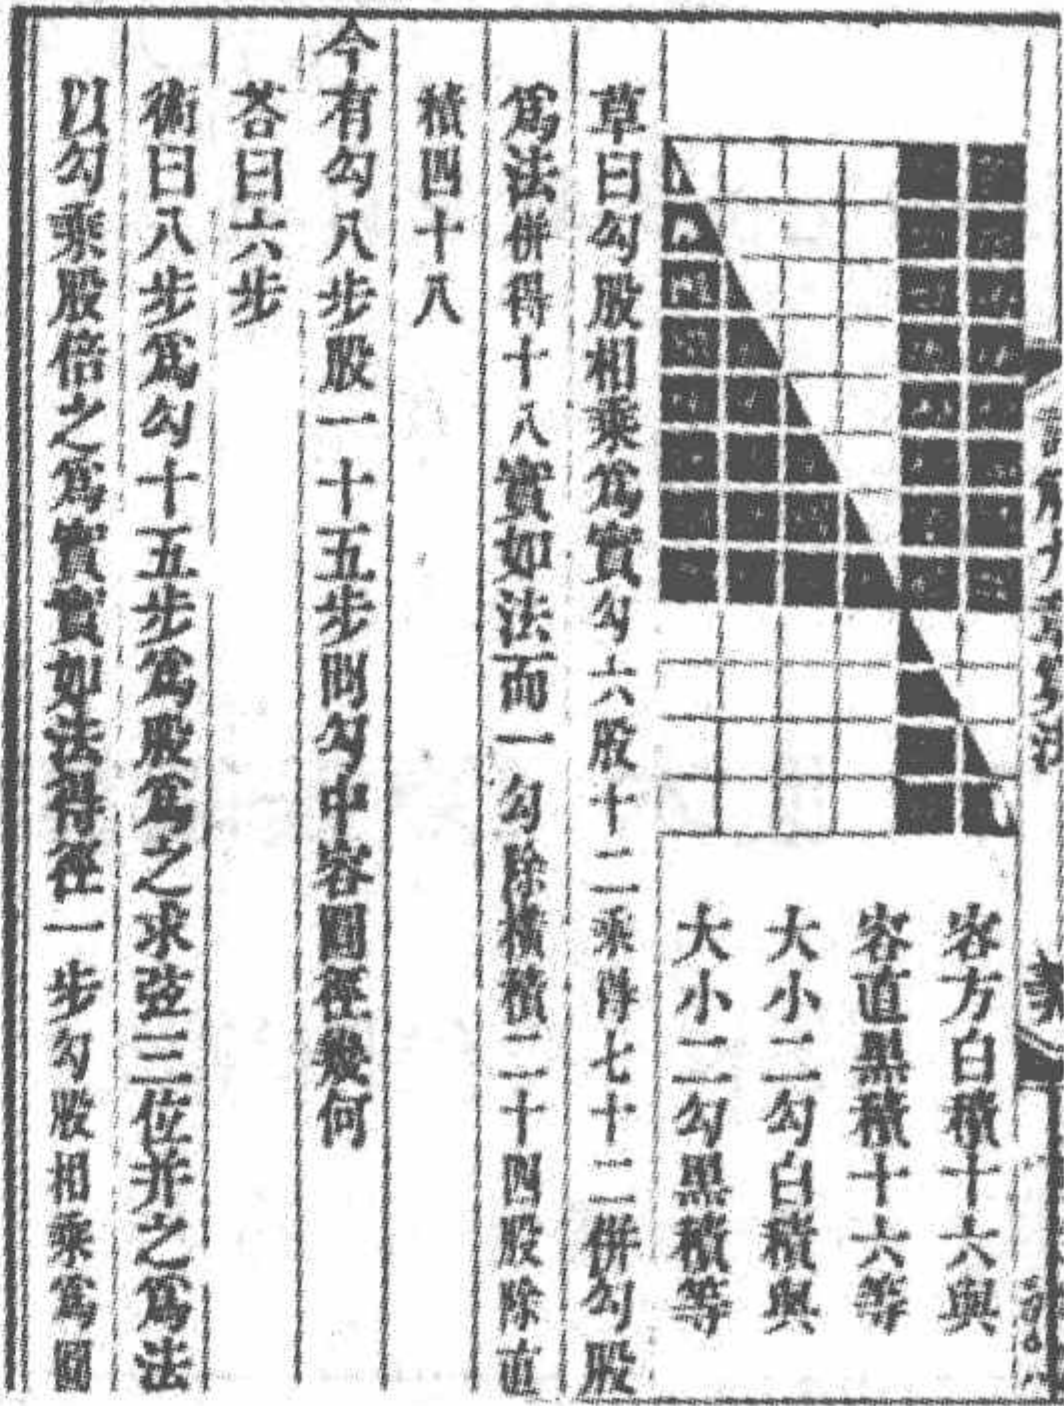 容方白積十六與
容直黒積十六等
大小二勾白積與
大小二勾黒積等
草曰勾股相乘爲實勾六股十二乘得七十二併勾股
爲法併得十八實如法而一勾除橫積二十四股除直
積四十八
今有勾八步股一十五步問勾中容圓徑幾何
荅曰六步
術曰八步爲勾十五步爲股爲之求弦三位并之爲法
以勾乘股倍之爲實實如法得徑一步勾股相乘爲圓